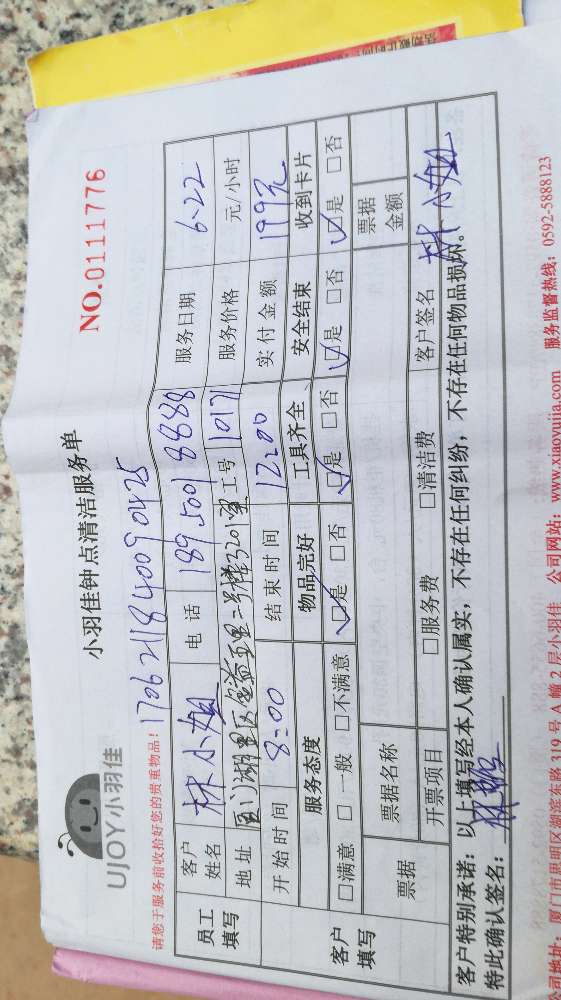 UJOY小羽佳
小羽佳钟点清洁服务单
NO.0111776
请您于服务前收拾好您的贵重物品!
1706211840090425
员工填写
客户姓名 林小姐 电话 189 5001 8888 服务日期 6.22
地址 工号 1017 服务价格 元/小时
开始时间 8:00 结束时间 12:00 实付金额 199元
客户填写
服务态度 物品完好 工具齐全、 安全结束 收到卡片
□满意 □一般 □不满意 □是 □否 □是 □否 □是 □否 □是 □否
票据 票据名称 票据金额
开票项目 □服务费 □清洁费 客户签名 林小姐
客户特别承诺:以上填写经本人确认属实,不存在任何纠纷,不存在任何物品损坏。
特此确认签名:
公司地址:厦门市思明区湖滨东路 319 号 A 幢 2 层小羽佳 公司网站:www.xiaoyujia.com 服务监督热线:0592-5888123